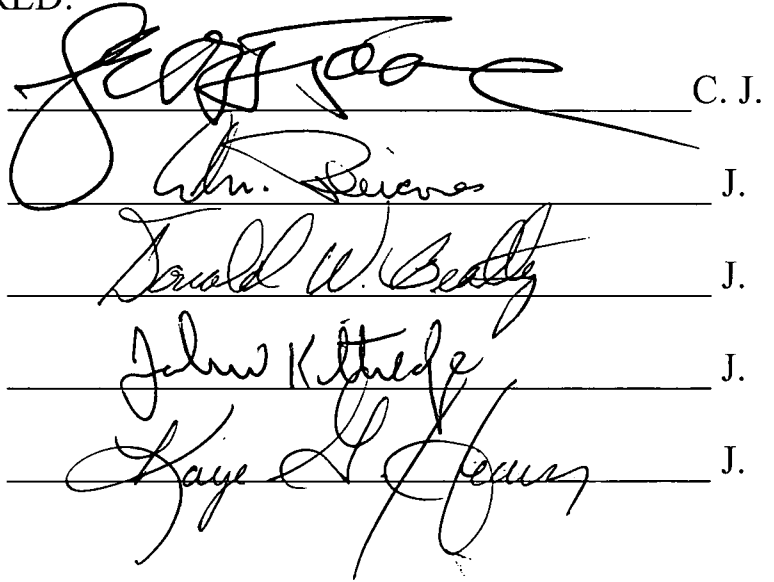 RED.
C. J.
J.
Donald W. Beatty J.
John Kittredge J.
Kaye G. Hearn J.